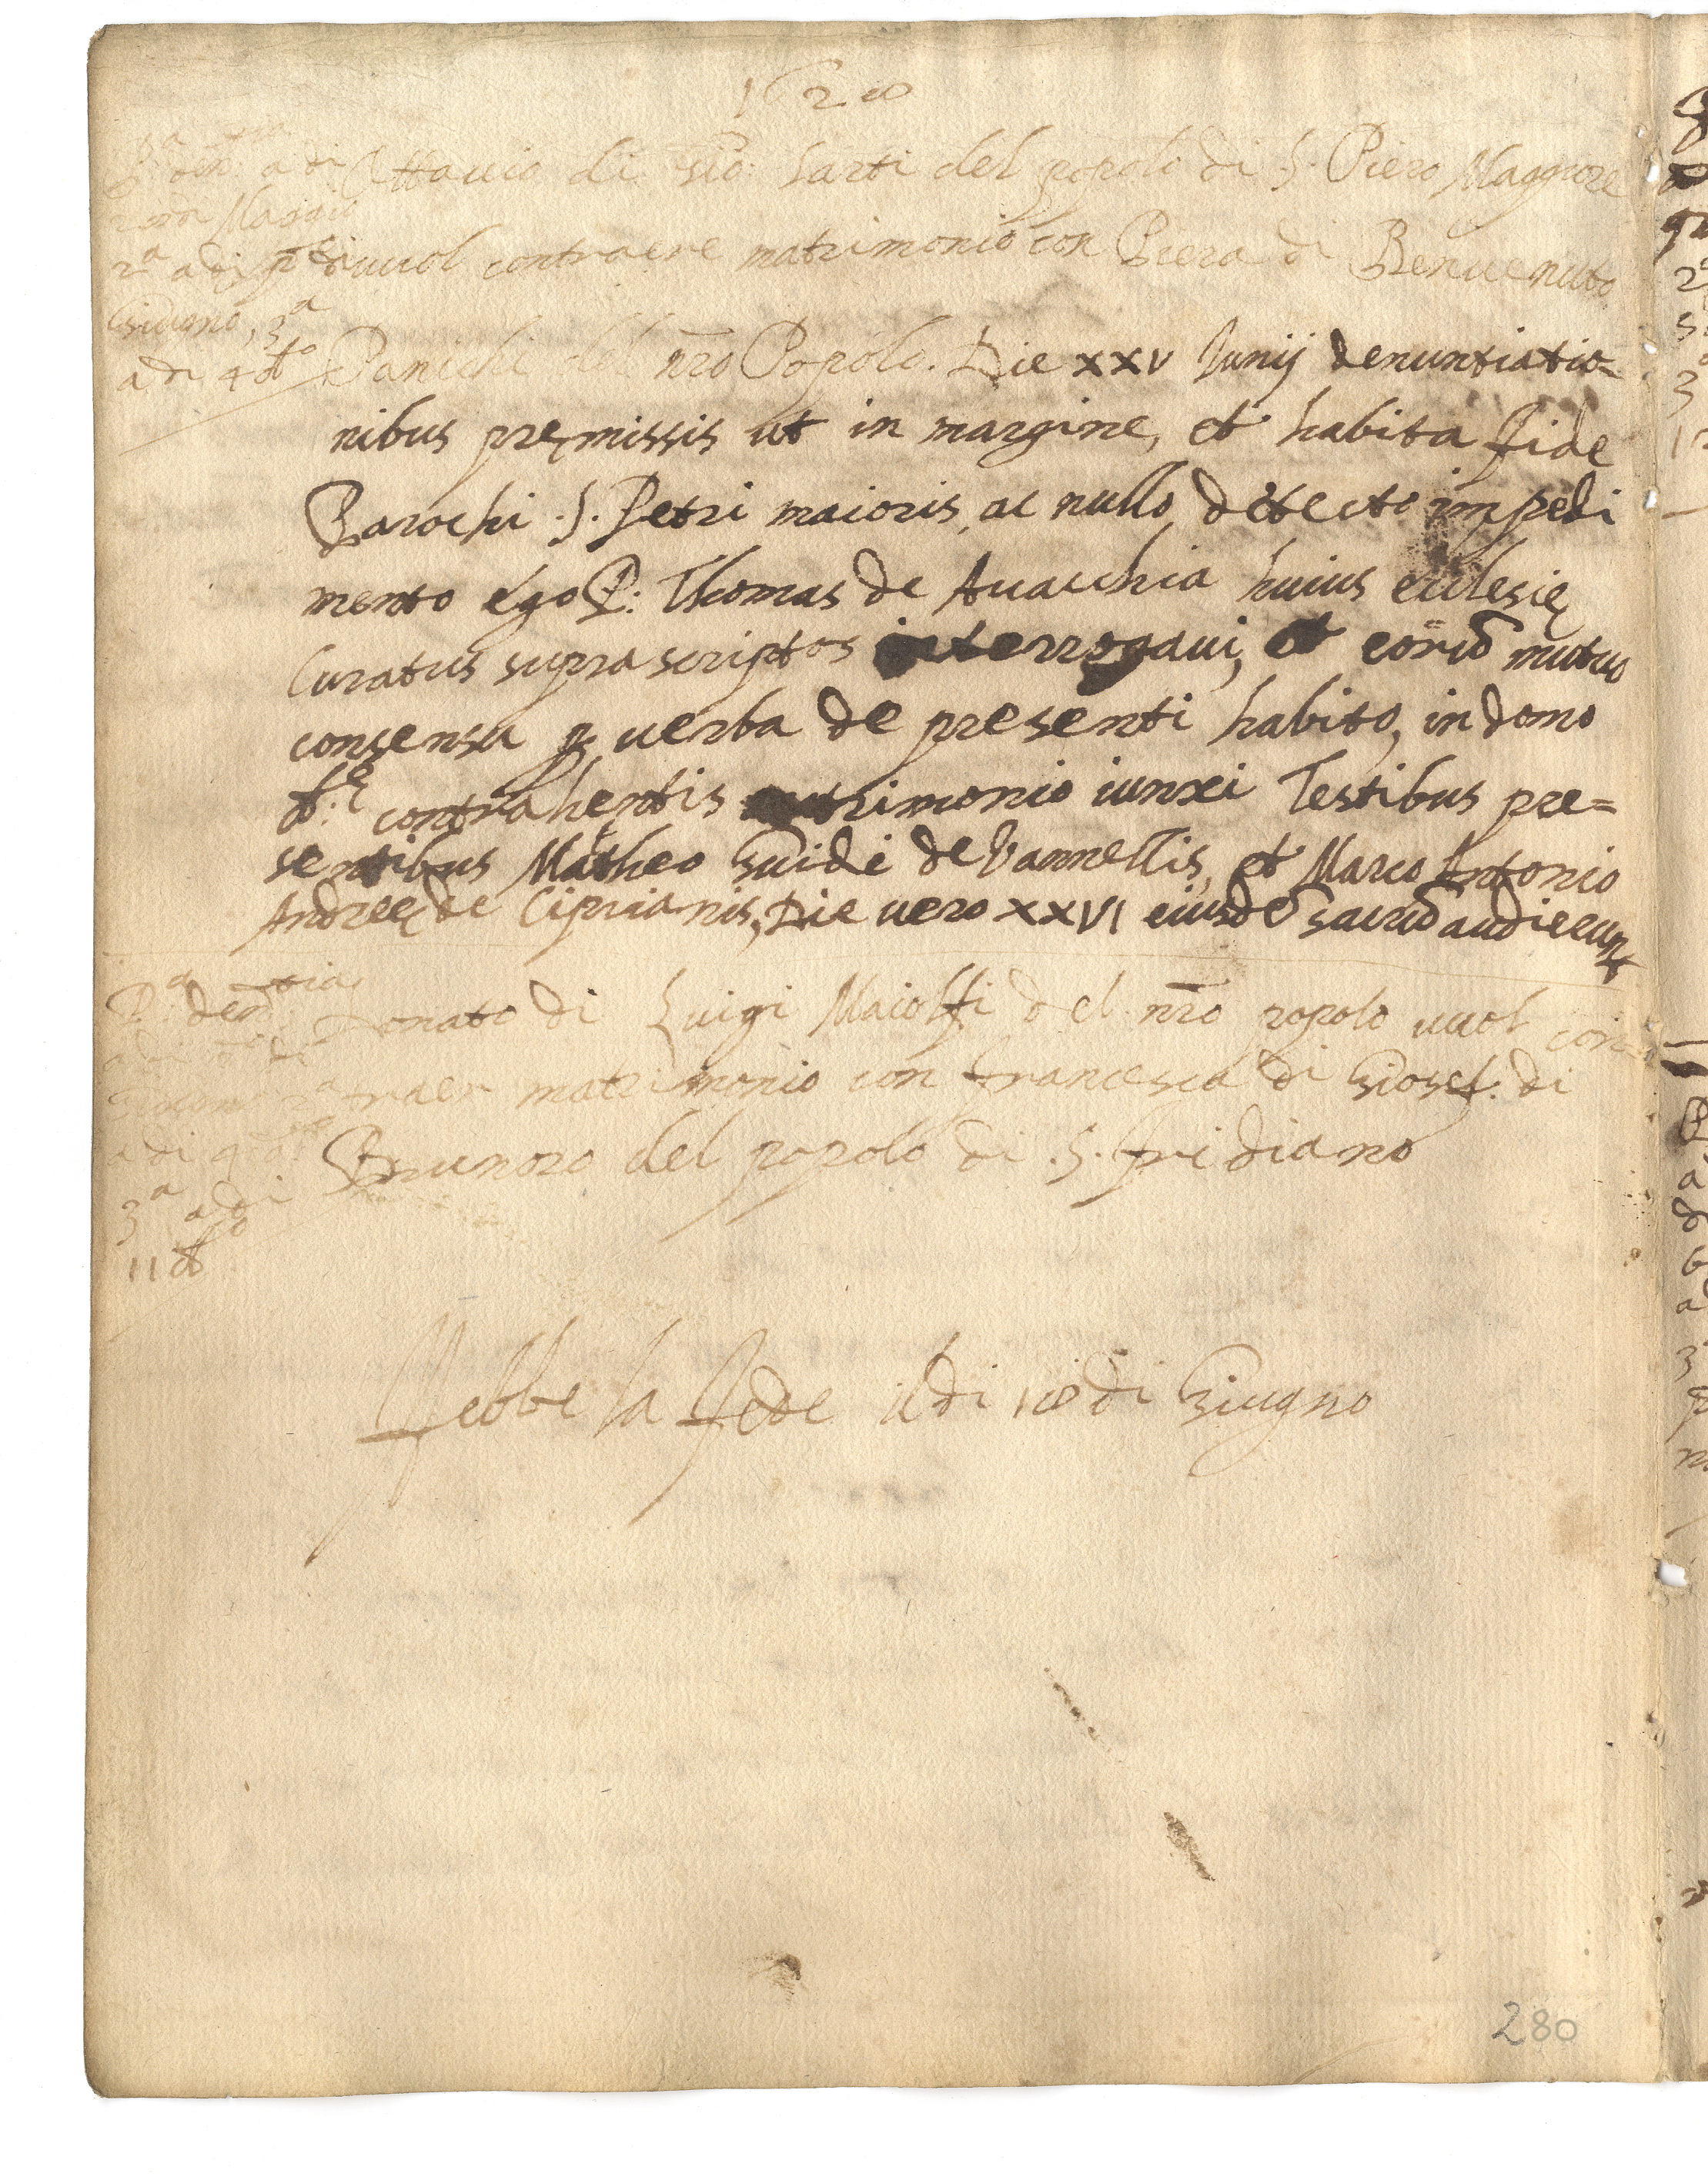 1628
P.a den.tia a di
Maggio
2.a a di p.o di
Giugno, 3.a
a di 4 d.o
Ottauio di Gio: Sarti del popolo di S. Piero Maggiore
uuol contraere matrimonio con Piera di Benuenuto
Panichi del nr̄o Popolo. Die xxv Junij denuntiatio=
nibus pręmissis ut in margine, et habita fide
Parochi .S. Petri maioris, ac nullo detecto impedi
mento ego P: Thomas de Auacchia huius ecclesię
Curatus supra scriptos interrogaui, et eorū mutuo
consensu p uerba de presenti habito, in domo
d:ę contrahentis matrimonio iunxi Testibus pre=
sentibus Matheo Guidi de Vannellis, et Marco Antonio
Andreę de Ciprianis, Die uero xxvi eiusdē sacrū audierunt
P.a den.tia
a di
Giugno 2.a
a di
3.a a di
11 d.o
Donato di Luigi Maiolfi del nr̄o popolo uuol con=
traer matrimonio con francesca di Giosef. di
Brunoro del popolo di .S. fridiano
Hebbe la fede il di 18 di Giugno
280